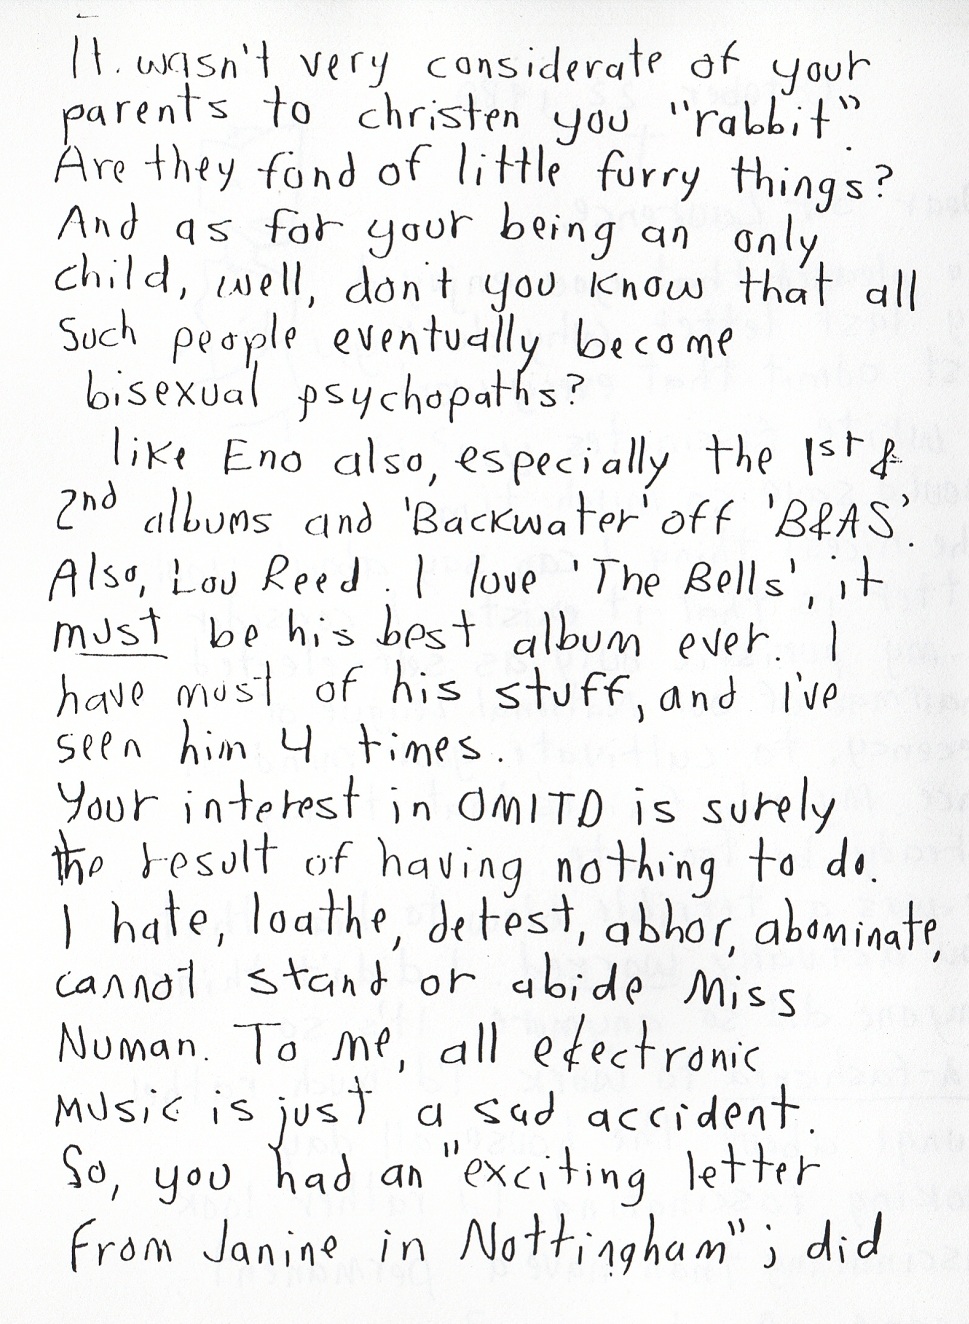 It wasn't very considerate of your
parents to christen you "rabbit".
Are they fond of little furry things?
And as for your being an only
child, well, don't you know that all
such people eventually become
bisexual psychopaths?
like Eno also, especially the 1st &
2nd albums and 'Backwater' off 'B&AS'.
Also, Lou Reed. I love 'The Bells', it
must be his best album ever. I
have most of his stuff, and I've
seen him 4 times.
Your interest in OMITD is surely
the result of having nothing to do.
I hate, loathe, detest, abhor, abominate,
cannot stand or abide Miss
Numan. To me, all electronic
music is just a sad accident.
So, you had an "exciting letter
from Janine in Nottingham"; did